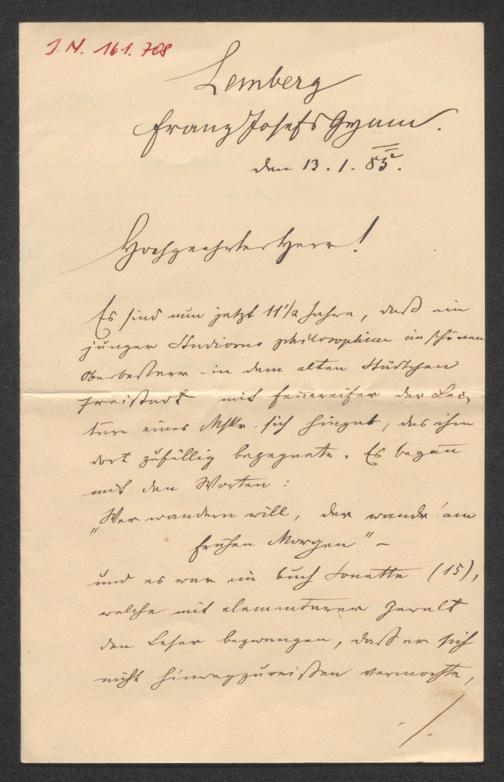 J. N. 161.708
Lemberg
Franz Josefs Gymn.
den 13. 1. 85.
Hochgeehrter Herr!
Es sind nun jetzt 11 1/2 Jahre, daß ein
junger Studiosus philosophiae im schönen
Oberösterr. in dem alten Städtchen
Freistadt mit Feuereifer der Lec-
türe eines Mskr. sich hingab, das ihm
dort zufällig begegnete. Es begann
mit den Worten:
„Wer wandern will, der wandr' am
frühen Morgen" –
und es war ein Buch Sonette (15),
welche mit elementarer Gewalt
den Leser bezwangen, daß er sich
nicht hinwegzureißen vermochte,
./.